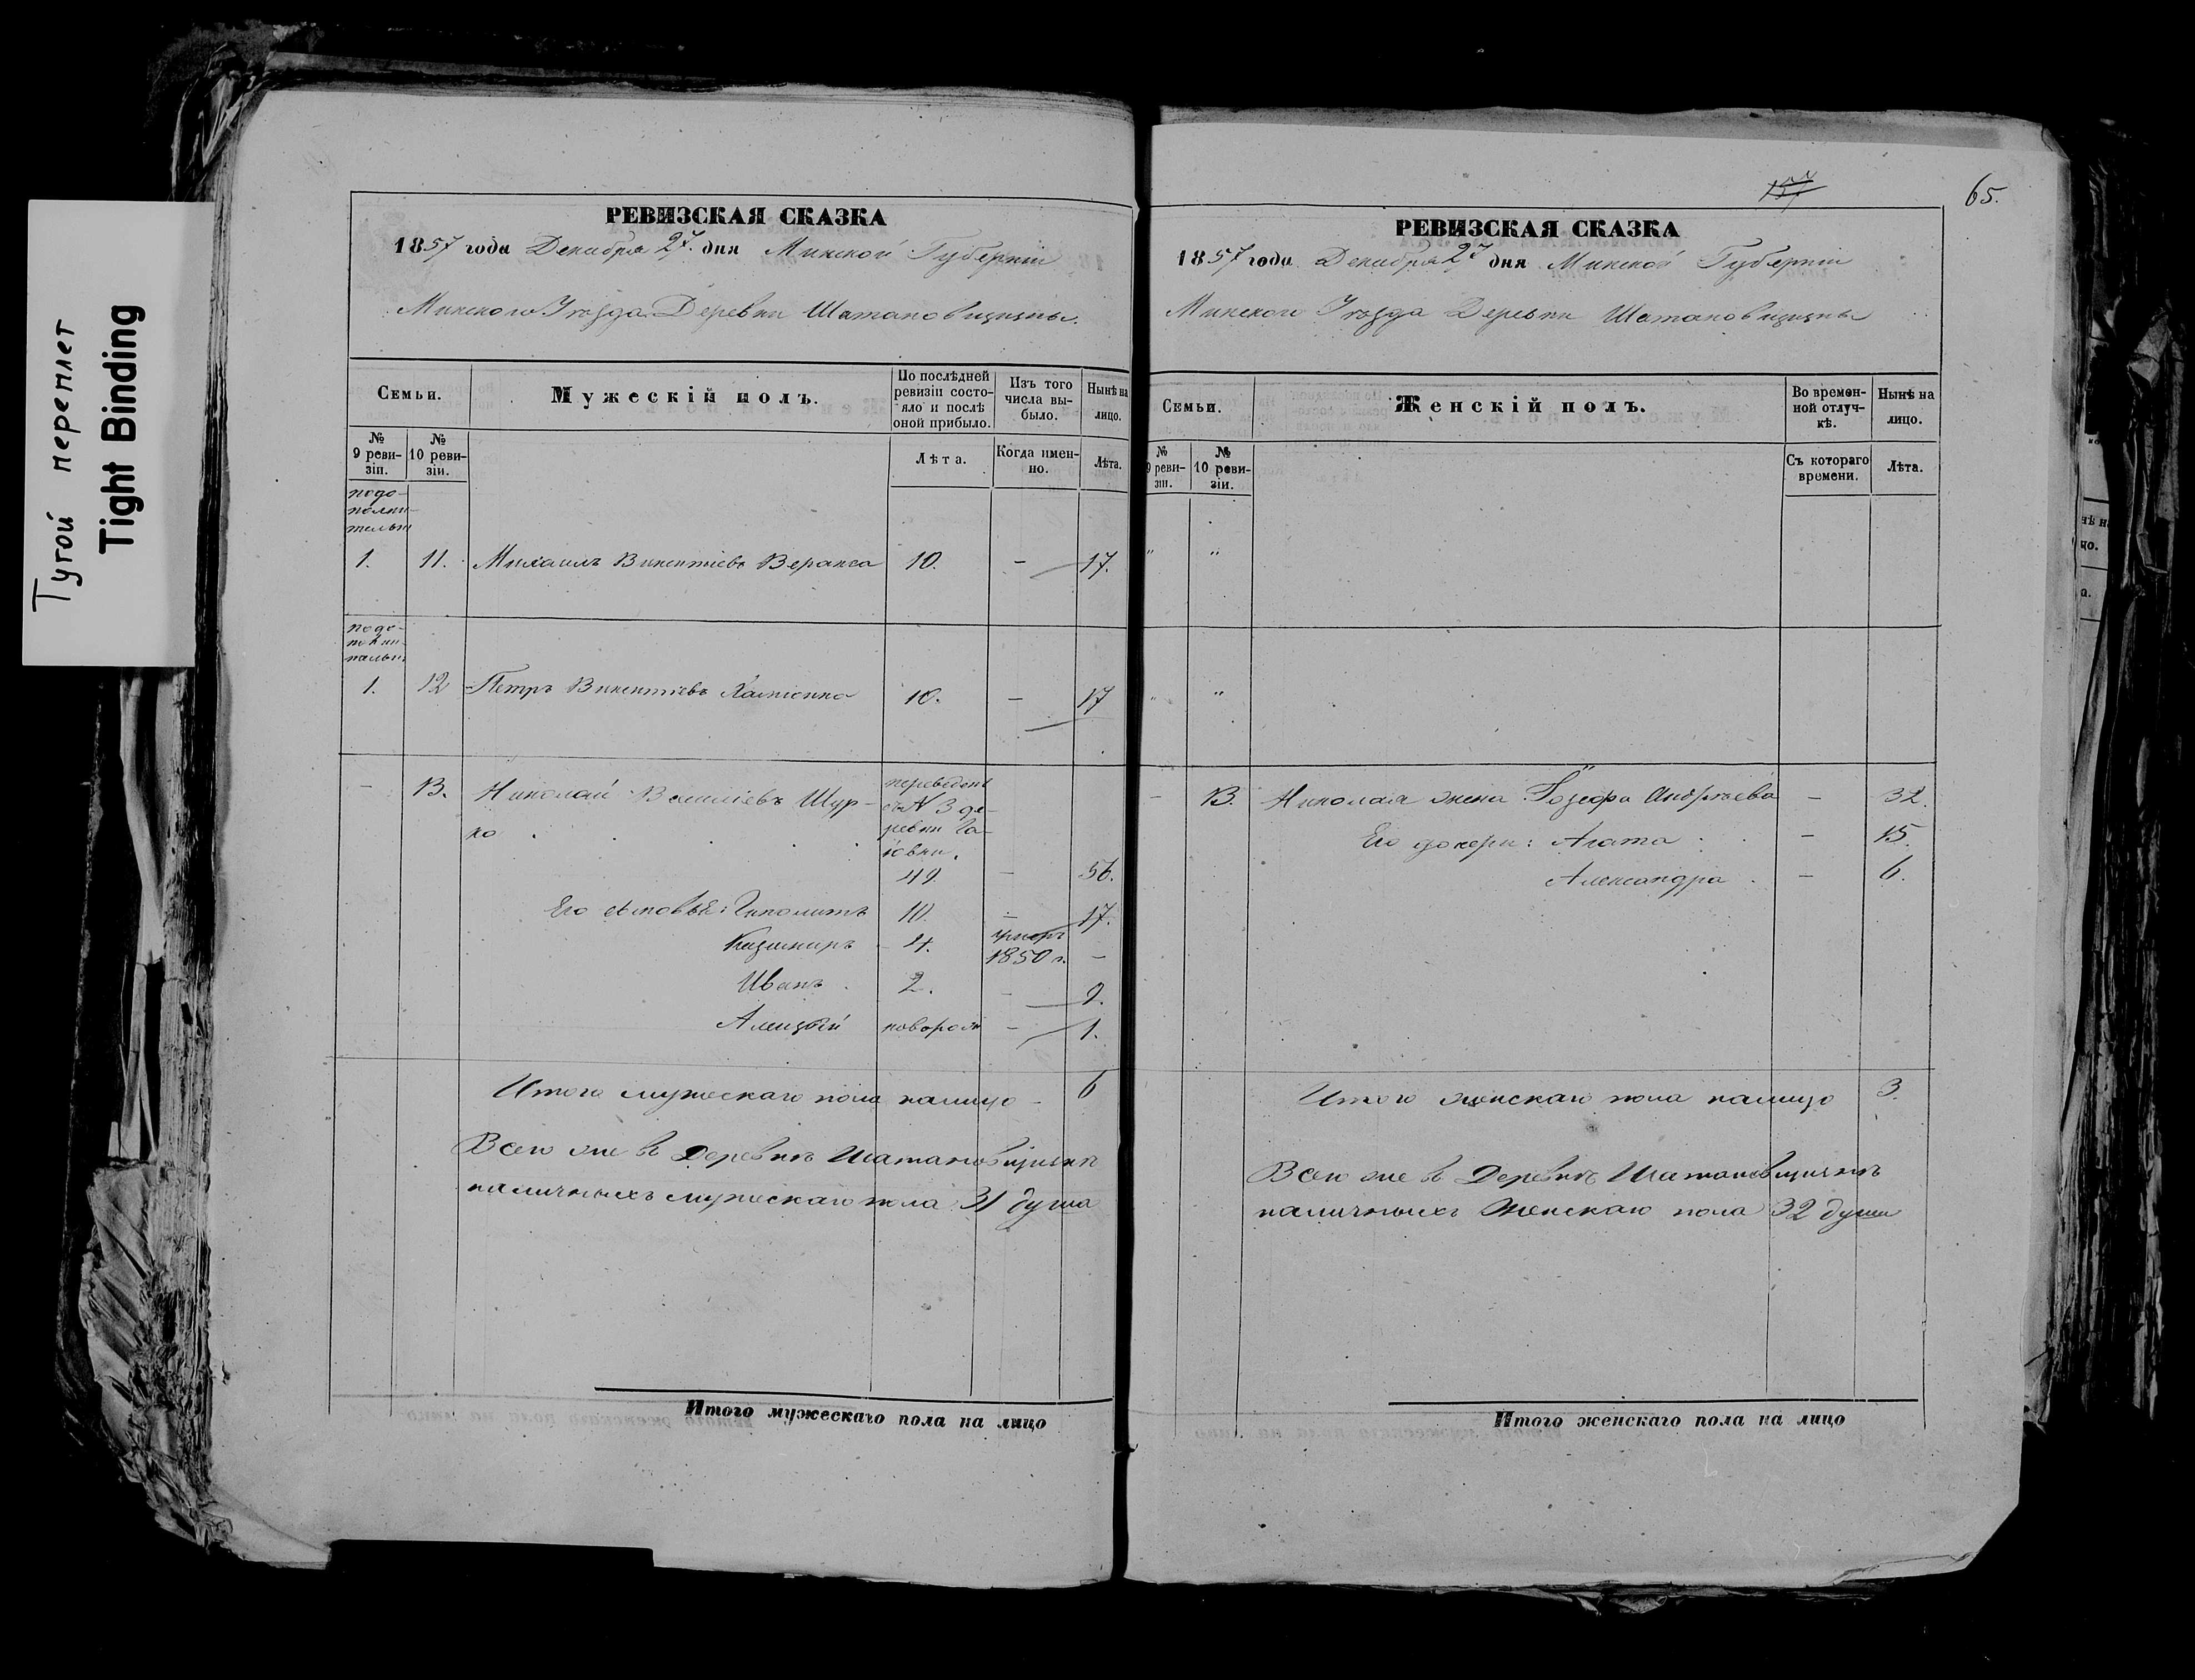 Тугой переплет
Tight Binding
РЕВИЗСКАЯ СКАЗКА
1857 года Декабря 27. дня Минской Губерніи
Минского Уѣзда Деревни Шатановщизны.
Семьи.
Мужескій полъ.
По послѣдней ревизіи состояло и послѣ оной прибыло.
Изъ того числа выбыло.
Нынѣ на лицо.
№ 9 ревизіи.
№ 10 ревизіи.
Лѣта.
Когда именно.
Лѣта.
1. 11. Михаилъ Викентіевъ 10. — 17.
1. 12 Петръ Викентіевъ 10. — 17
— 13. Николай Василіевъ Шур-
ко
переведенъ
съ № 3 де-
ревни
49. — 56.
Его сыновья: Иполитъ 10. — 17.
Казимиръ 4. умеръ 1850 г. —
Иванъ 2. — 9.
новорож — 1.
Итого мужескаго пола налицо - 6
Всего же въ Деревнѣ Шатановщизнѣ
наличныхъ мужескаго пола 31 душа
Итого мужескаго пола на лицо
157
65.
РЕВИЗСКАЯ СКАЗКА
1857 года Декабря 27 дня Минской Губерніи
Минского Уѣзда Деревни Шатановщизны
Семьи.
Женскій полъ.
Во временной отлучкѣ.
Нынѣ на лицо.
№ 9 ревизіи.
№ 10 ревизіи.
Съ котораго времени.
Лѣта.
" "
" "
— 13. Николая жена Іозефа Андрѣева — 32.
Его дочери: Агата — 15.
Александра — 6.
Итого женскаго пола налицо 3.
Всего же въ Деревнѣ Шатановщизнѣ
наличныхъ Женскаго пола 32 души
Итого женскаго пола на лицо